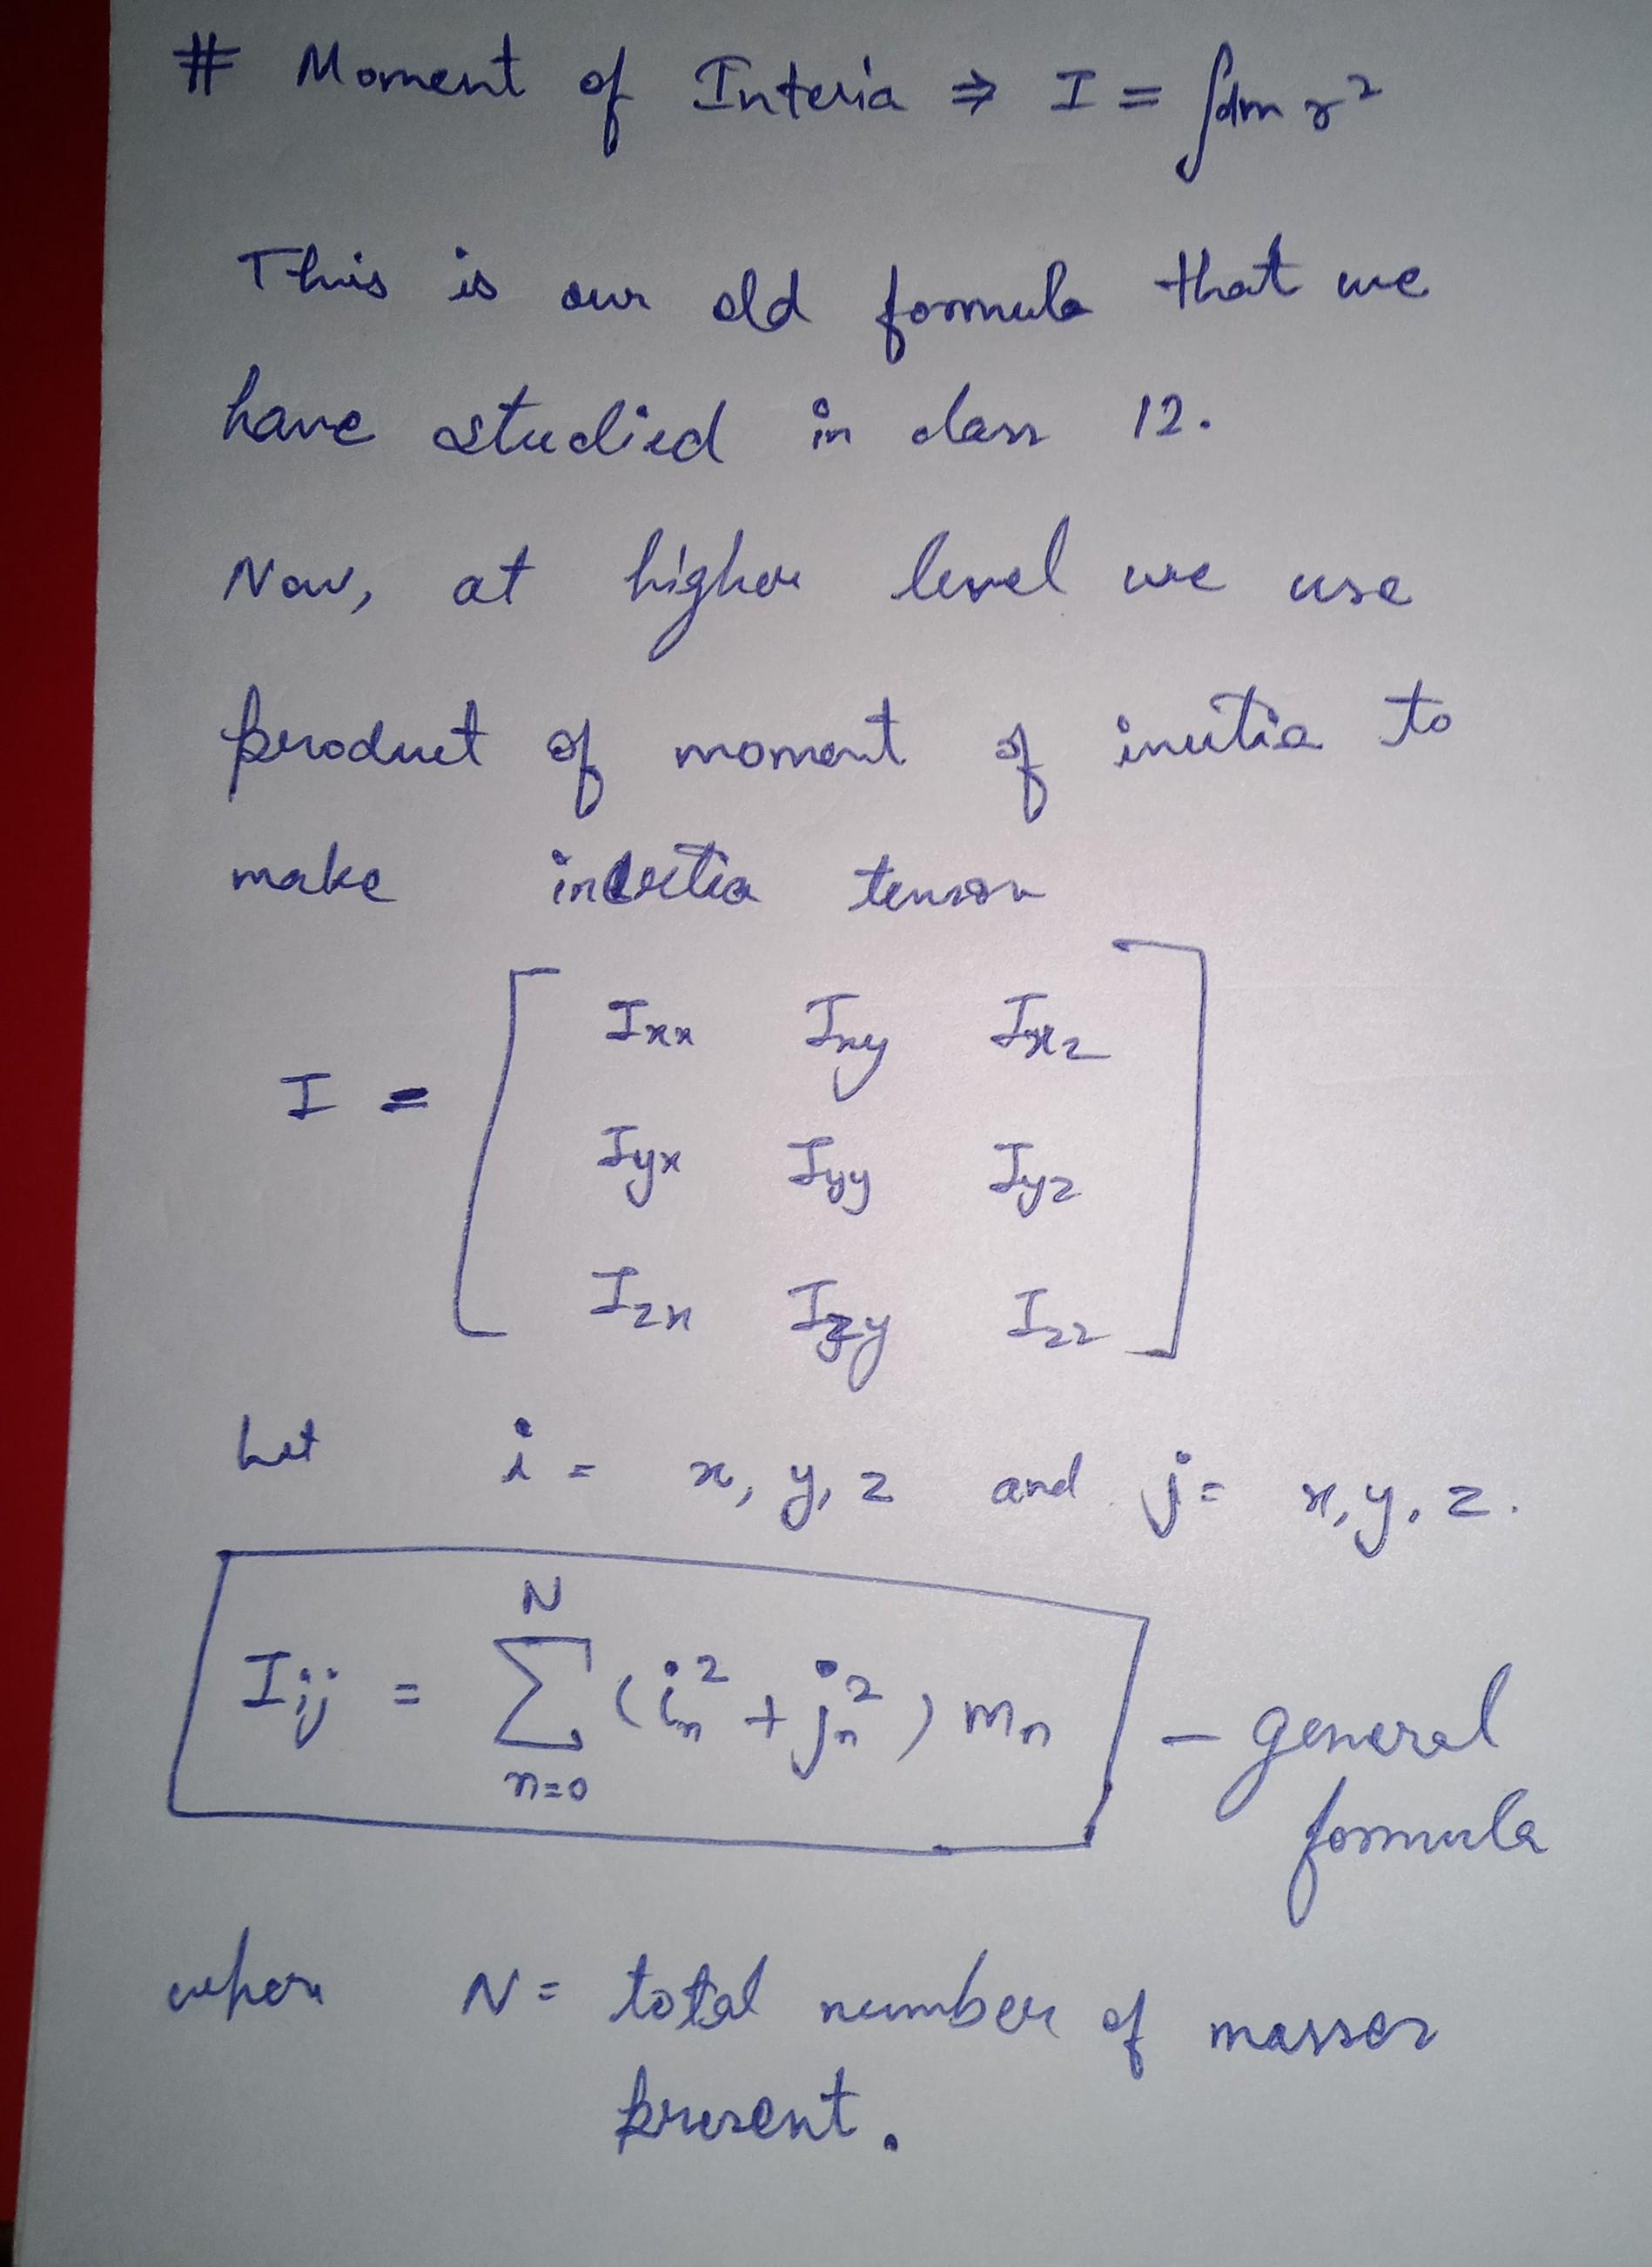 # Moment of Interia ⇒ I = ∫dm r²
This is our old formula that we
have studied in class 12.
Now, at higher level we use
product of moment of inertia to
make inertia tensor
I = [ Ixx Ixy Ixz
Iyx Iyy Iyz
Izx Izy Izz ]
Let i = x, y, z and j = x, y, z.
Iij = Σ_{n=0}^{N} (i_n² + j_n²) m_n - general
formula
where N = total number of masses
present.